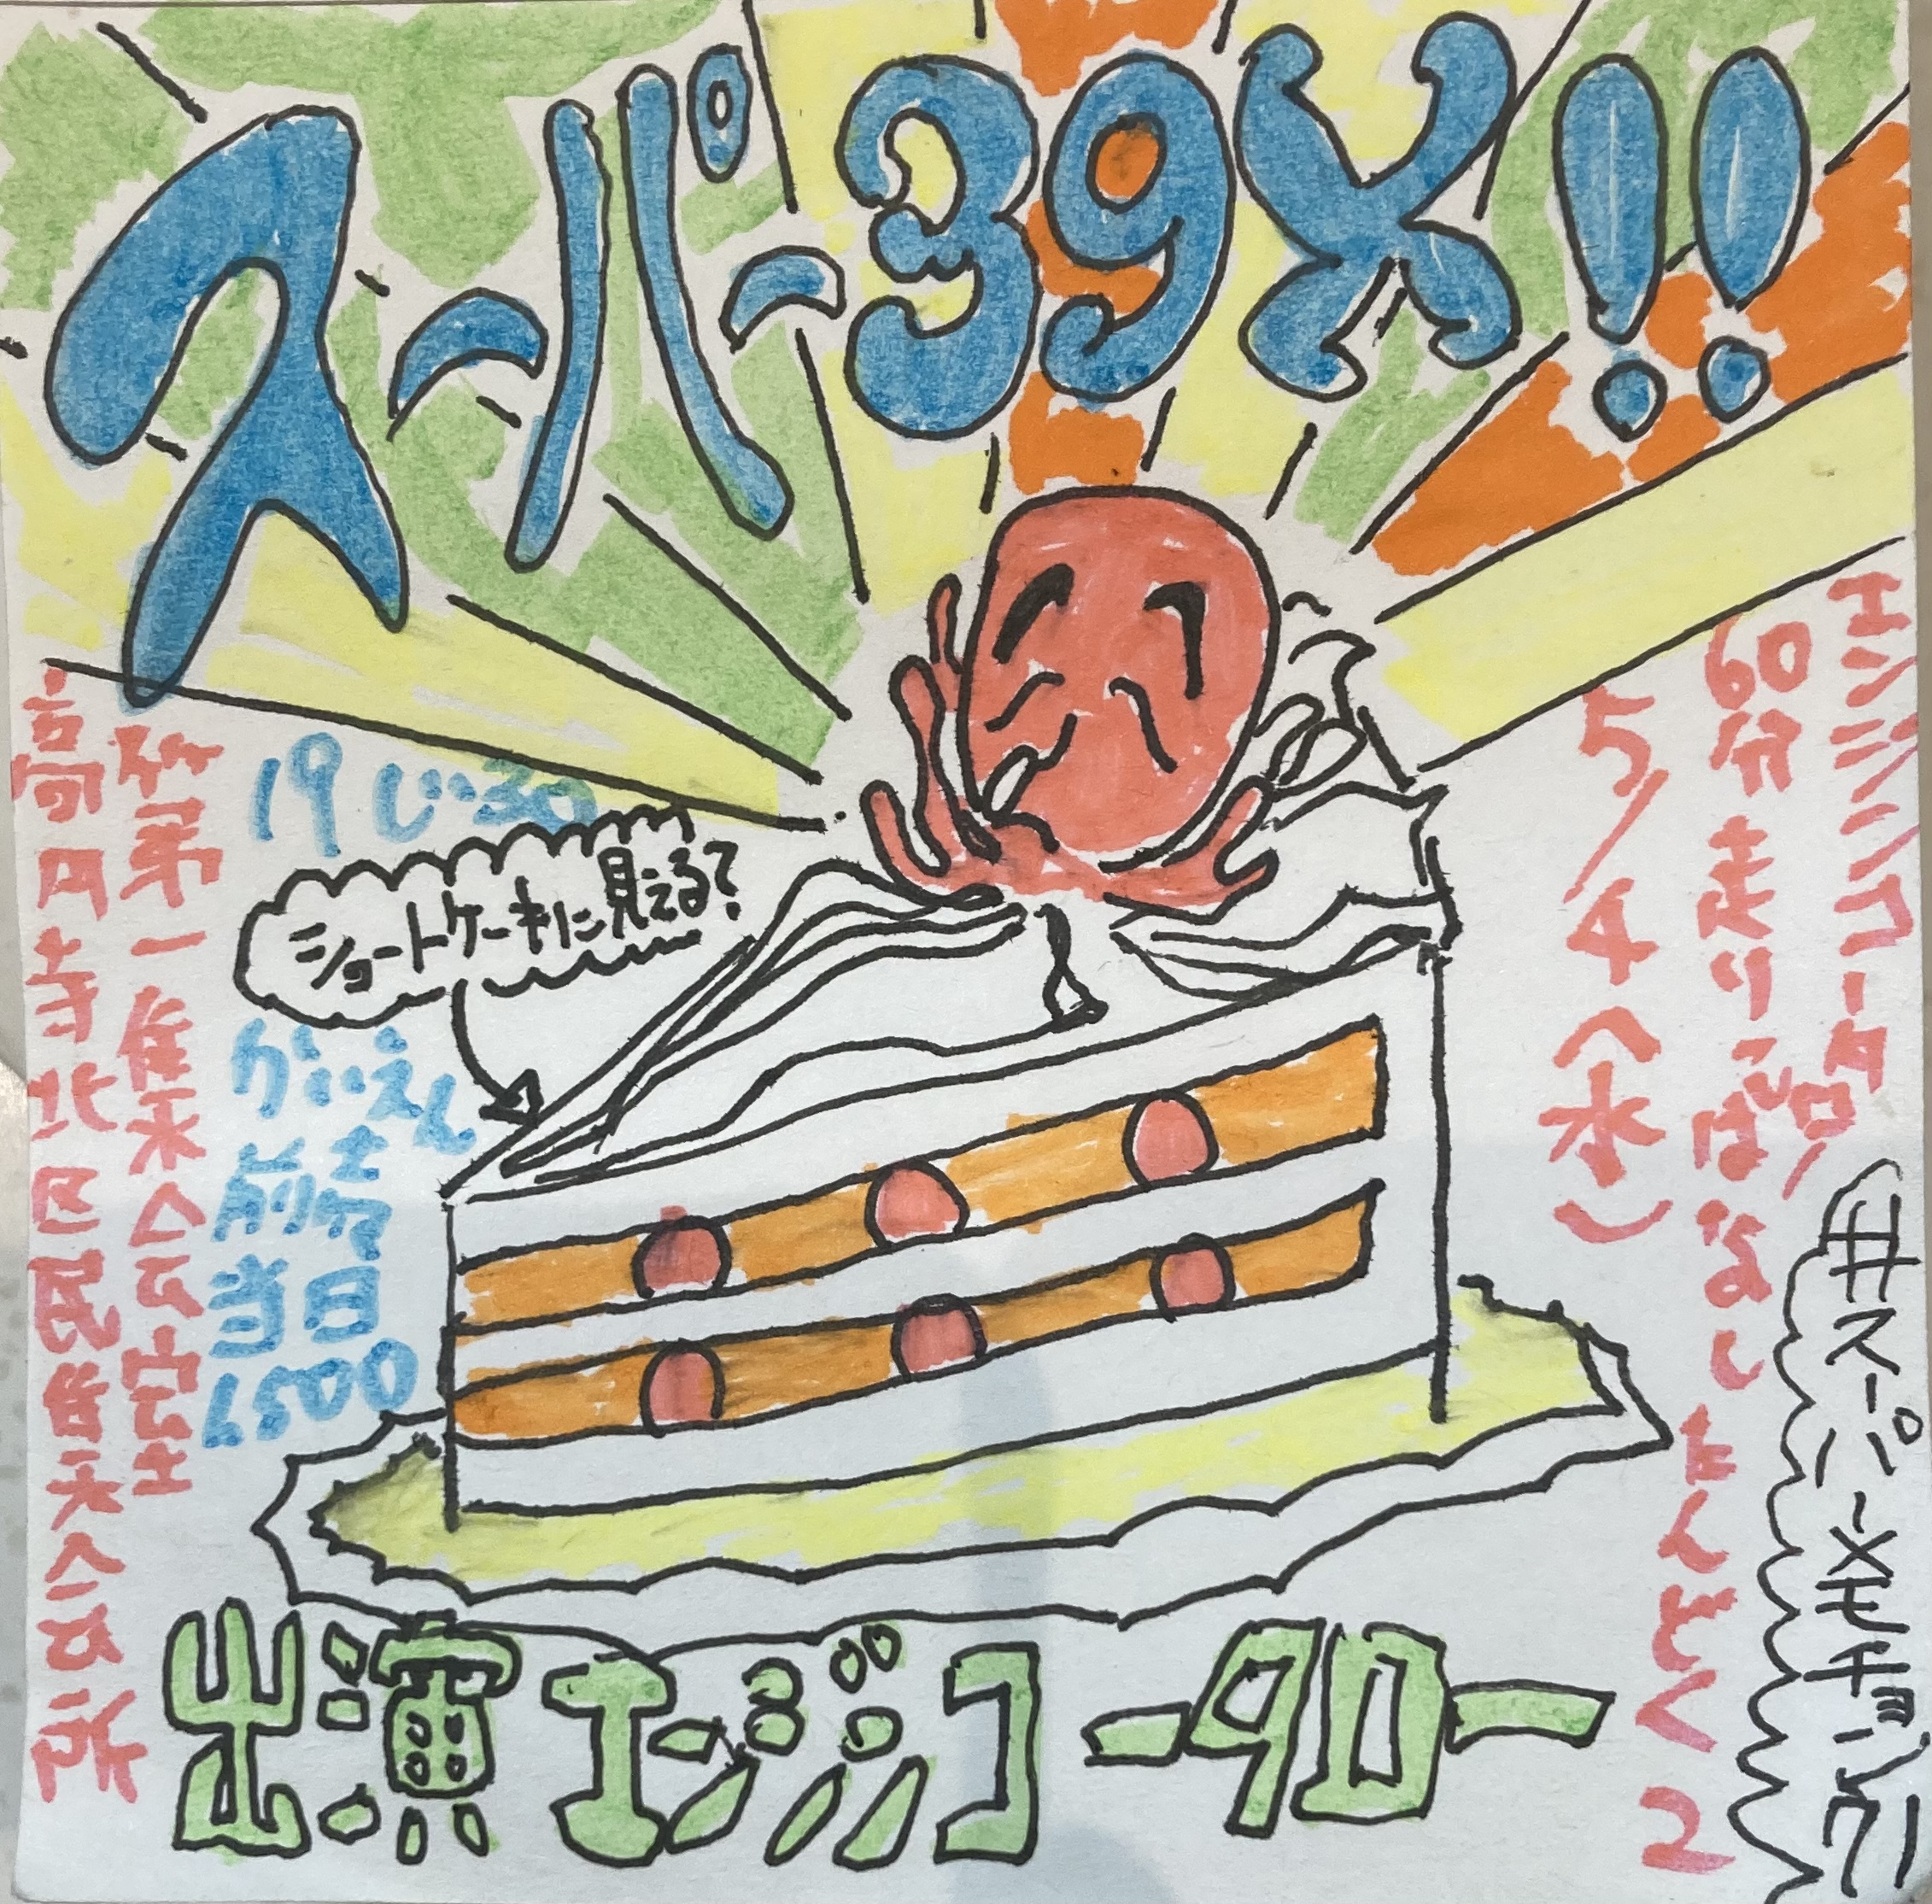 スーパー39メ!!
エンジンコータロー
60分走りっぱなし たんどく2
5/4(水)
#スーパーメモチョンマ!
19じ:30
かいえん
ショートケーキに見える?
前売
当日
1,500
高円寺北区民集会所
第一集会室
出演エンジンコータロー